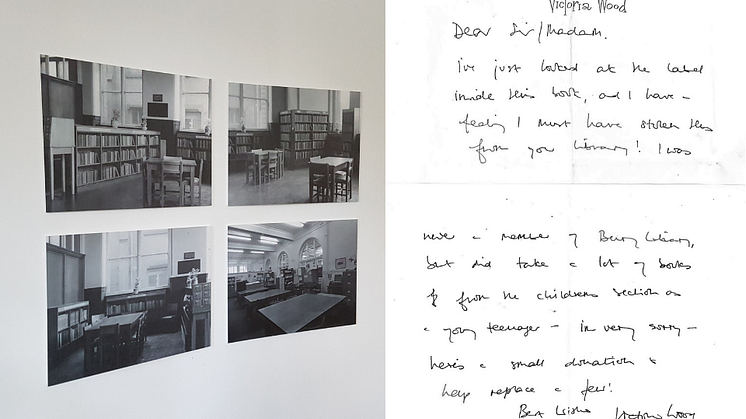 Victoria Wood
Dear Sir/Madam.
I've just looked at the label
inside this book, and I have a
feeling I must have stolen this
from your Library! I was
never a member of Bury Library,
but did take a lot of books
from the childrens section as
a young teenager – I'm very sorry –
here's a small donation to
help replace a few!
Best Wishes Victoria Wood